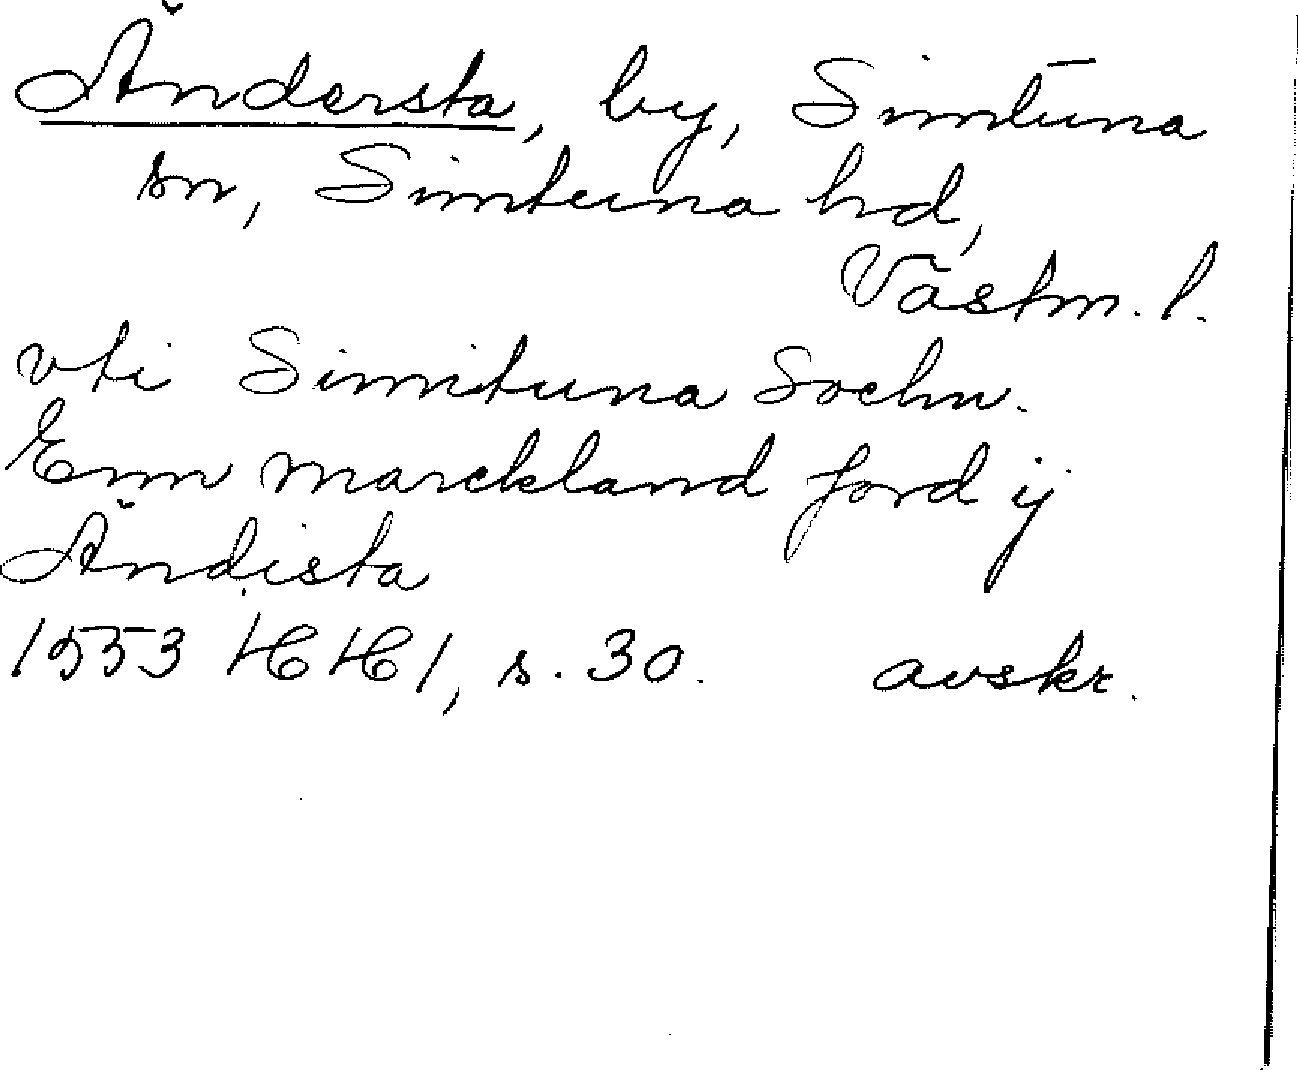 Ändersta, by, Simtuna
sn, Simtuna hd,
Västm. l.
vti Simituna Sochn.
Enn marckland jord ij
Ändista
1553 HH 1, s. 30. avskr.